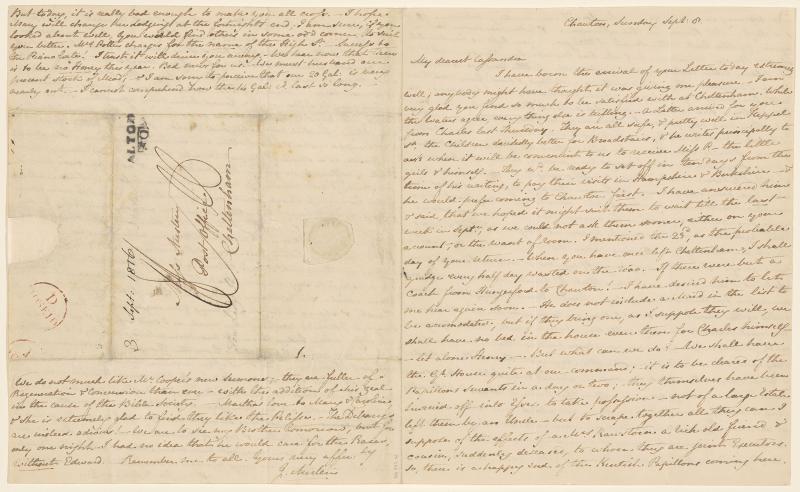 Chawton, Sunday Sept: 8.
My dearest Cassandra
I have borne the arrival of your Letter today extremely
well; anybody might have thought it was giving me pleasure. – I am
very glad you find so much to be satisfied with at Cheltenham. While
the Waters agree, every thing else is trifling. – A Letter arrived for you
from Charles last Thursday. They are all safe, & pretty well in Keppel
St., the Children decidedly better for Broadstairs, & he writes principally to
ask when it will be convenient to us to receive Miss P. – the little
girls & himself. – They wd. be ready to set off in ten days from the
time of his writing, to pay their visits in Hampshire & Berkshire – &
he would prefer coming to Chawton first. I have answered him
& said, that we hoped it might suit them to wait till the last
week in Septr., as we could not ask them sooner, either on your
account, or the want of room. I mentioned the 23d. as the probable
day of your return. – When you have once left Cheltenham, I shall
grudge every half day wasted on the road. If there were but a
coach from Hungerford to Chawton! – I have desired him to let
me hear again soon. – He does not include a Maid in the list to
be accomodated, but if they bring one, as I suppose they will, we
shall have no bed in the house even then for Charles himself
– let alone Henry –. But what can we do? – We shall have
the Gt. House quite at our command; – it is to be cleared of the
Papillons Servants in a day or two; – they themselves have been
hurried off into Essex to take possession – not of a large Estate
left them by an Uncle – but to scrape together all they can I
suppose of the effects of a Mrs. Rawstorn a rich old friend &
cousin, suddenly deceased, to whom they are joint Executors.
So, there is a happy end of the Kentish Papillons coming here.
But today, it is really bad enough to make you all cross. – I hope
Mary will change her Lodgings at the fortnight's end; I am sure, if you
looked about well, you would find others in some odd corner, to suit
you better. Mrs. Potter charges for the name of the High St. – Success to
the Pianoforte! I trust it will drive you away. – We hear now that there
is to be no Honey this year. Bad news for us. – We must husband our
present stock of Mead; & I am sorry to perceive that our 20 Gal: is very
nearly out. – I cannot comprehend how the 14 Gal: cd. last so long.
ALTON
Miss Austen
Post Office
Cheltenham
Sept: 1816
1.
We do not much like Mr. Cooper's new Sermons; – they are fuller of
Regeneration & Conversion than ever – with the addition of his zeal
in the cause of the Bible Society. – Martha's love to Mary & Caroline
& she is extremely glad to find they like the Pelisse. – The Debarys
are indeed odious! – We are to see my Brother tomorrow, but for
only one night. I had no idea that he would care for the Races,
without Edward. Remember me to all. Yours very affec:ly
J. Austen